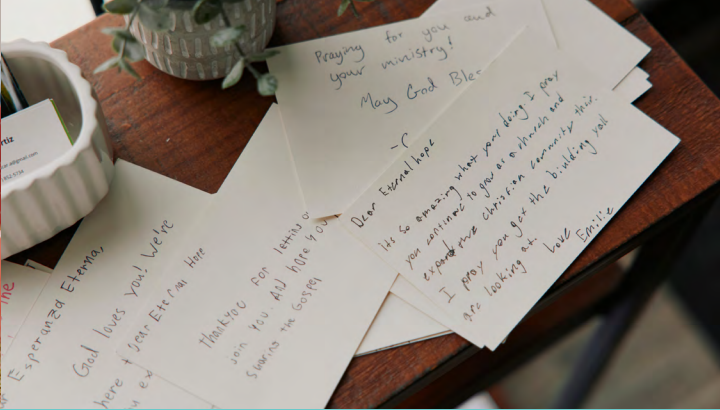 Praying for you and
your ministry!
May God Bles
Dear Eternal hope
its so amazing what your doing I pray
you continue to grow as a church and
expand the christian community their.
I pray you get the building you
are looking at.
Love
Emilie
Thankyou for letting
join you. And hope you
sharing the Gospel
Esperanza Eterna,
God loves you! We're
here
Dear Eternal Hope
rtiz
@gmail.com